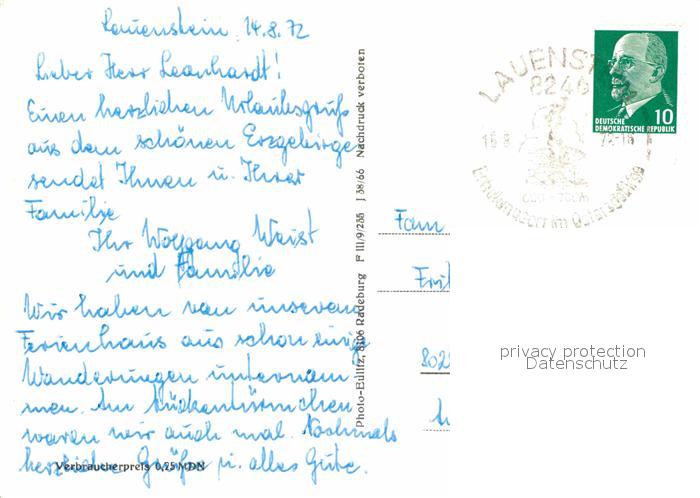 Lauenstein, 14.8.72
Lieber Herr Leonhardt!
Einen herzlichen Urlaubsgruß
aus dem schönen Erzgebirge
sendet Ihnen u. Ihrer
Familie
Ihr Wolfgang Waist
und Familie
Wir haben von unserem
Ferienhaus aus schon einige
Wanderungen unternom
men. Am Mückentürmchen
waren wir auch mal. Nochmals
herzliche Grüße u. alles Gute.
Verbraucherpreis 0,25 MDN
Photo-Eulitz, 8106 Radeburg F III/9/235 J 38/66 Nachdruck verboten
8246
10
DEUTSCHE
DEMOKRATISCHE REPUBLIK
Fam
802
privacy protection
Datenschutz